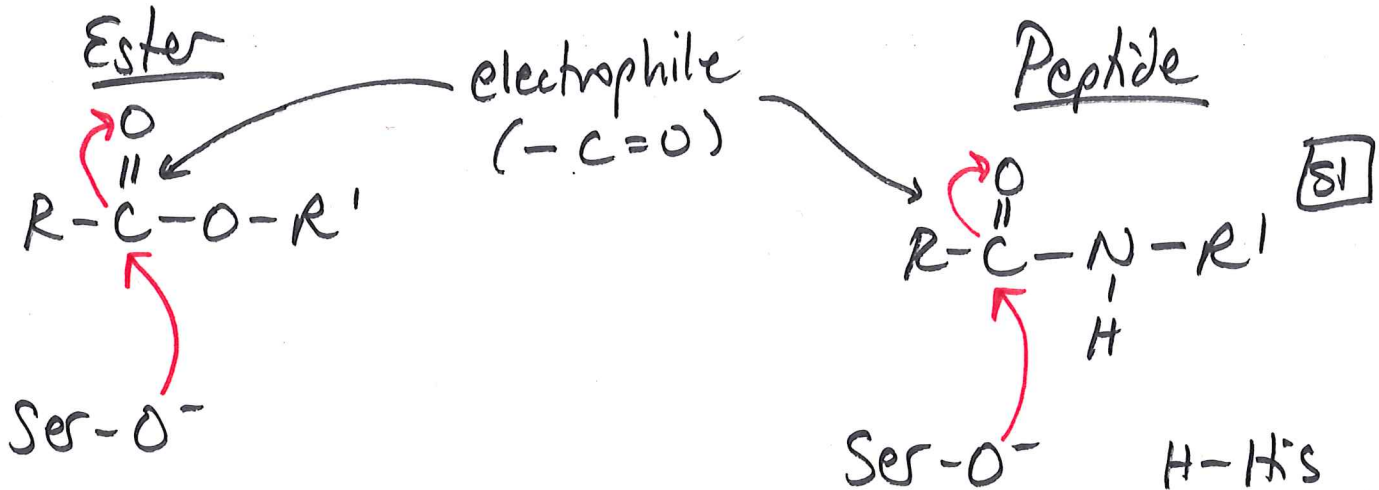 Ester
electrophile
(-C=O)
Peptide
O
||
R-C-O-R'
Ser-O⁻
S1
O
||
R-C-N-R'
|
H
Ser-O⁻ H-His